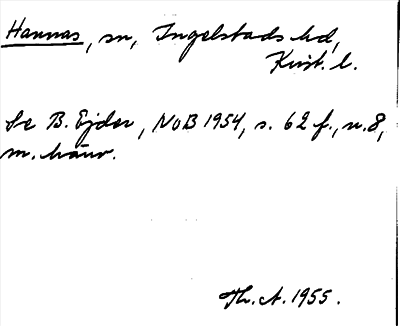 Hannas, sn, Ingelstads hd,
Krist. l.
Se B. Ejder, NoB 1954, s. 62 f., n. 8,
m. hänv.
Th. A. 1955.